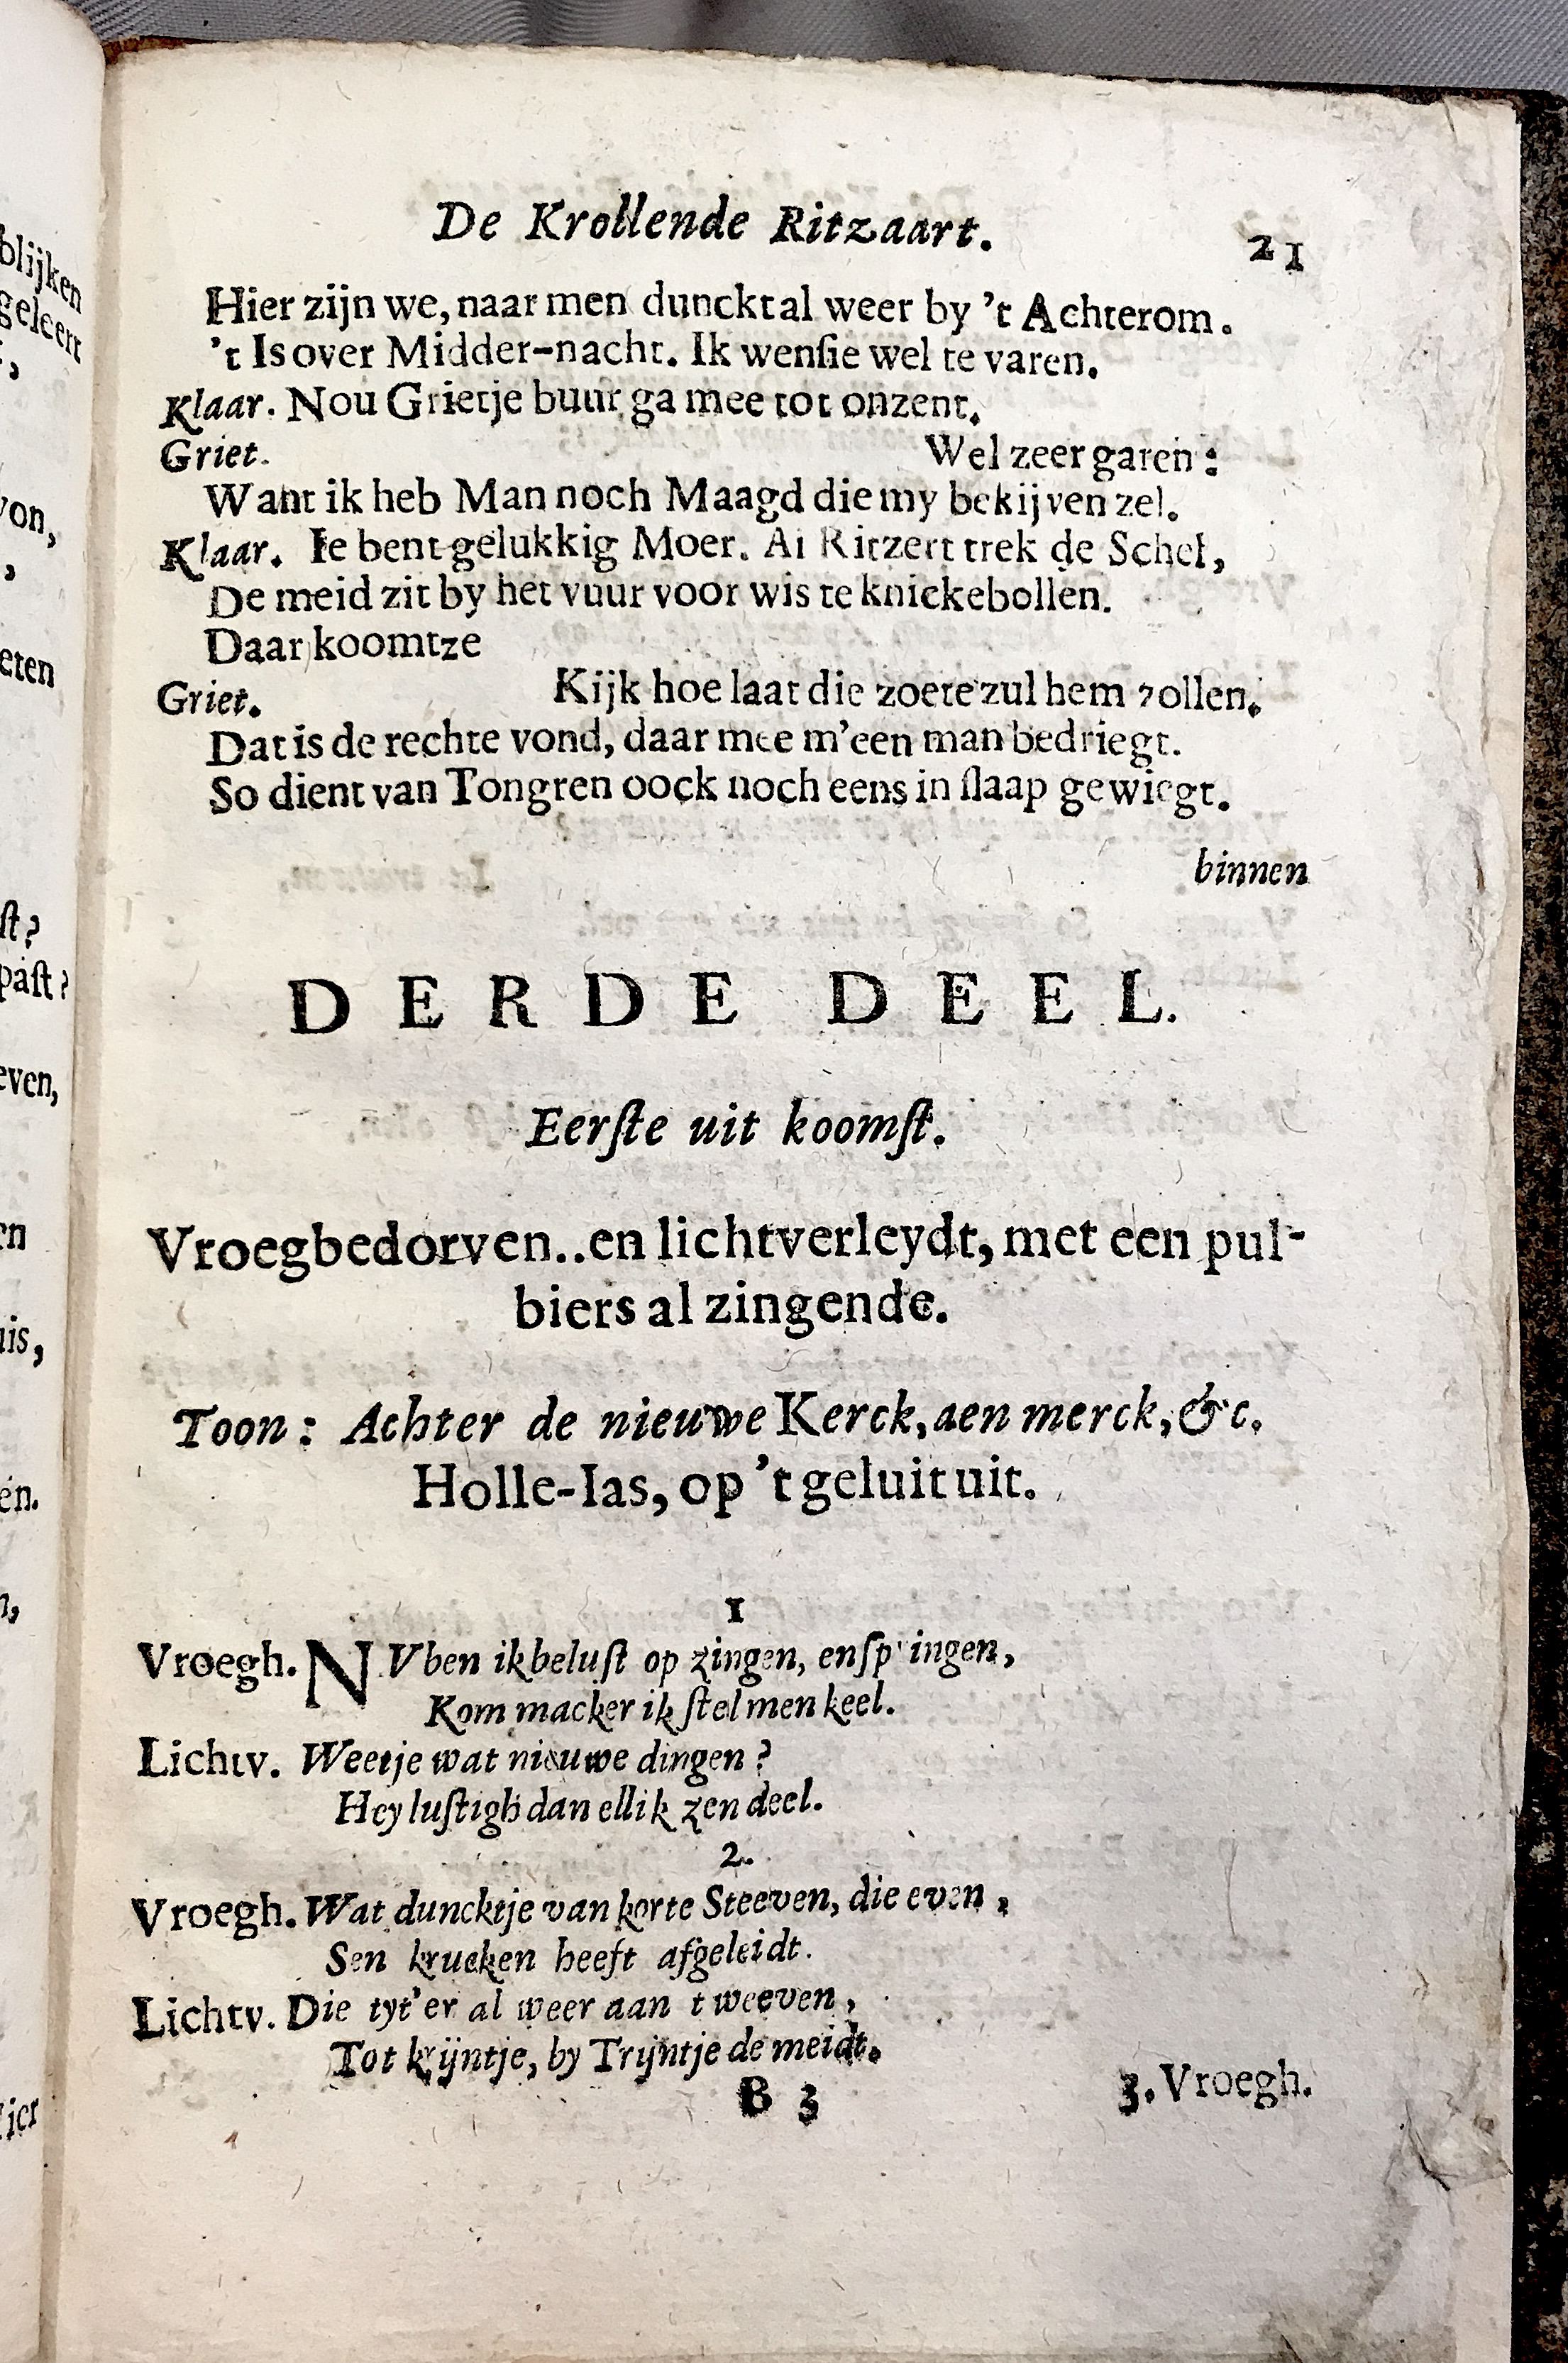 De Krollende Ritzaart. 21
Hier zijn we, naar men dunckt al weer by 't Achterom.
't Is over Midder-nacht. Ik wensie wel te varen.
Klaar. Nou Grietje buur ga mee tot onzent.
Griet. Wel zeer garen:
Want ik heb Man noch Maagd die my bekijven zel.
Klaar. Ie bent gelukkig Moer. Ai Ritzert trek de Schel,
De meid zit by het vuur voor wis te knickebollen.
Daar koomtze
Griet. Kijk hoe laat die zoete zul hem zollen.
Dat is de rechte vond, daar mee m'een man bedriegt.
So dient van Tongren oock noch eens in slaap gewiegt.
binnen
DERDE DEEL.
Eerste uit koomst.
Vroegbedorven..en lichtverleydt, met een pul-
biers al zingende.
Toon: Achter de nieuwe Kerck, aen merck, &c.
Holle-Ias, op 't geluit uit.
1
Vroegh. NV ben ik belust op zingen, en springen,
Kom macker ik stel men keel.
Lichtv. Weetje wat nieuwe dingen?
Hey lustigh dan ellik zen deel.
2.
Vroegh. Wat duncktje van korte Steeven, die even,
Sen krucken heeft afgeleidt.
Lichtv. Die tyt'er al weer aan t weeven,
Tot krijntje, by Trijntje de meidt.
B 3 3. Vroegh.